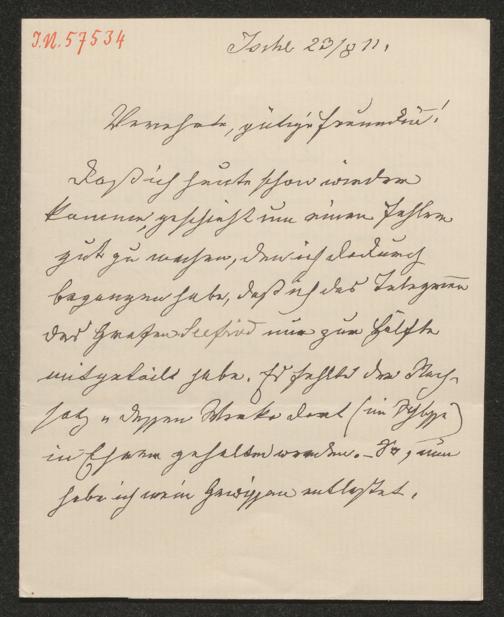 I.N. 57534
Ischl 23/8 11.
Verehrte, gütige Freundin!
Daß ich heute schon wieder
komme, geschieht um einen Fehler
gut zu machen, den ich dadurch
begangen habe, daß ich das Telegramm
des Grafen Seefried nur zur Hälfte
mitgeteilt habe. Es fehlte der Nach-
satz „dessen Werke dort (im Schloße)
in Ehren gehalten werden. – So, nun
habe ich mein Gewissen entlastet.